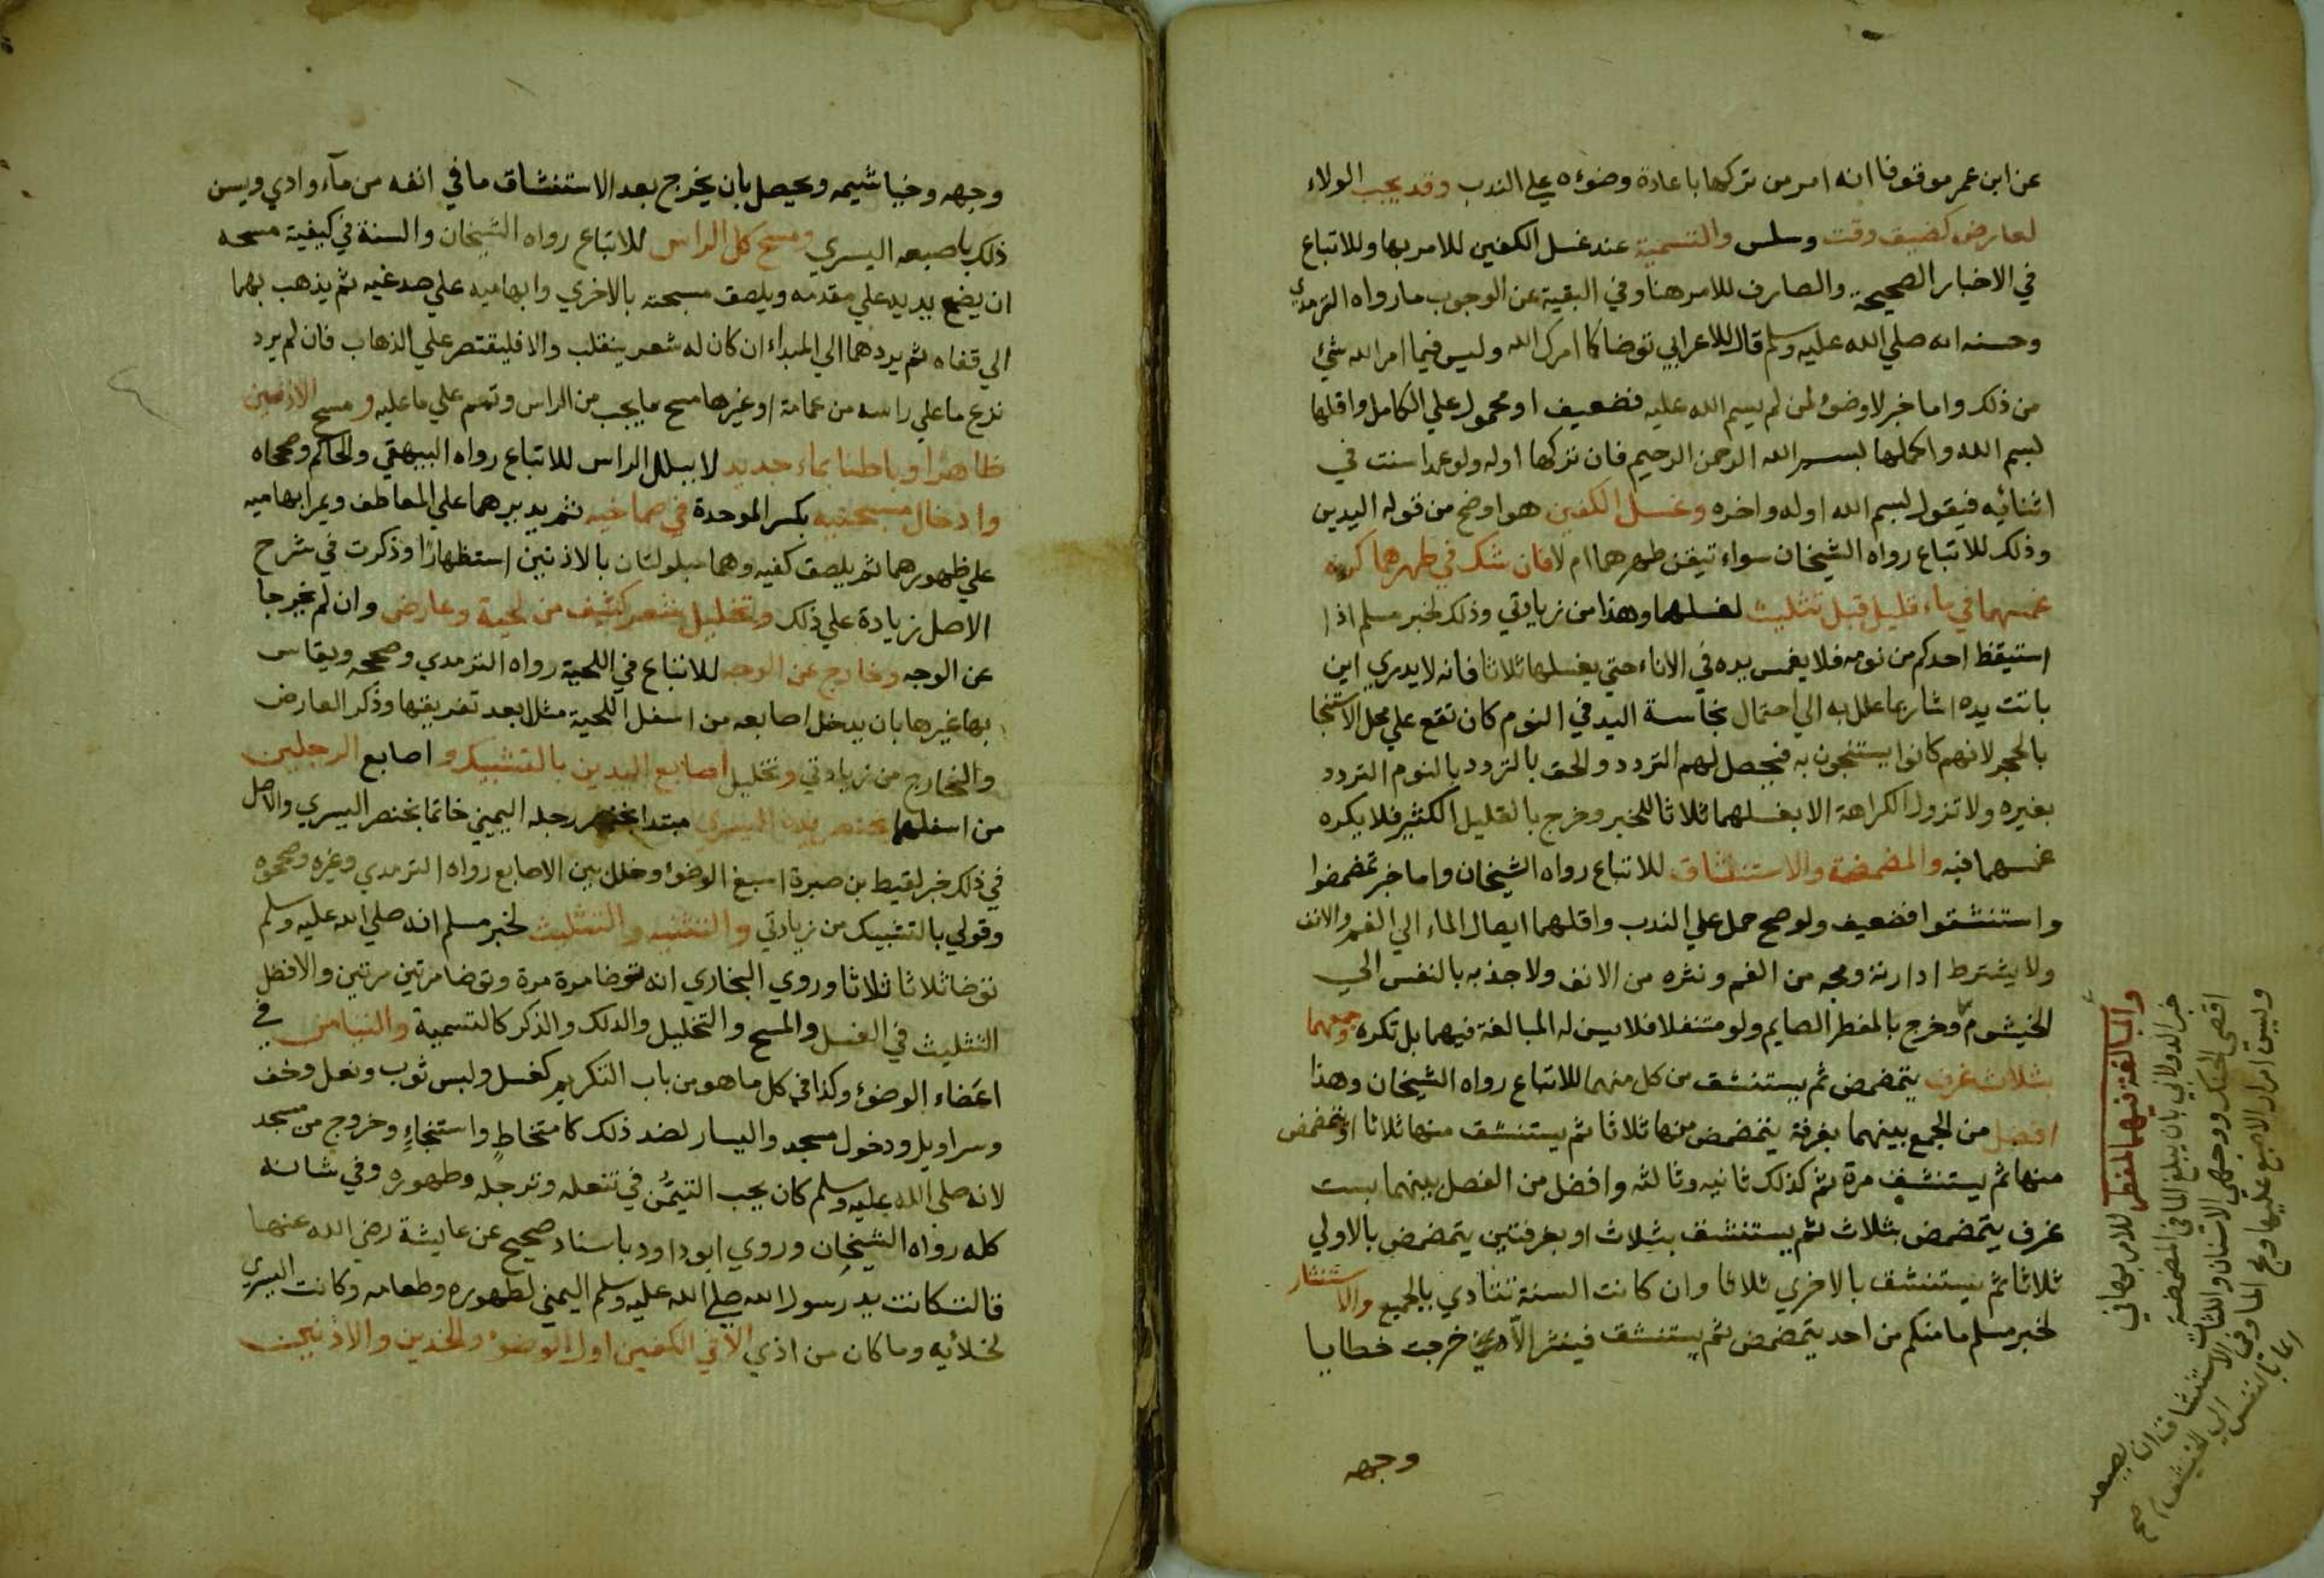 عن ابن عمر موقوفا انه امر من تركها باعادة وضوءه علي الندب وقد يجب الولاء
لعارض كضيق وقت وسلس والتسمية عند غسل الكفين للامر بها وللاتباع
في الاخبار الصحيحة والصارف للامر هنا وفي البقية عن الوجوب ما رواه الترمذي
وحسنه انه صلي الله عليه وسلم قال للاعرابي توضا كما امرك الله وليس فيما امر الله شئ
من ذلك واما خبر لا وضوء لمن لم يسم الله عليه فضعيف او محمول علي الكامل واقلها
بسم الله واكملها بسم الله الرحمن الرحيم فان تركها اوله ولو عمدا سنت في
اثنائيه فيقول بسم الله اوله واخره وغسل الكفين هو اوضح من قوله اليدين
وذلك للاتباع رواه الشيخان سواء تيقن طهرهما ام لا فان شك في طهرهما كره
غمسهما في ماء قليل قبل تثليث لغسلهما وهذا من زيادتي وذلك لخبر مسلم اذا
استيقظ احدكم من نومه فلا يغمس يده في الاناء حتي يغسلها ثلاثا فانه لا يدري اين
باتت يده اشار بما علل به الي احتمال نجاسة اليد في النوم كان تقع علي محل الاستنجا
بالحجر لانهم كانوا يستنجون به فيحصل لهم التردد والحق بالتردد بالنوم التردد
بغيره ولا تزول الكراهة الا بغسلهما ثلاثا للخبر وخرج بالقليل الكثير فلا يكره
غمسهما فيه والمضمضة والاستنشاق للاتباع رواه الشيخان واما خبر تمضمضوا
واستنشقوا فضعيف ولو صح حمل علي الندب واقلهما ايصال الماء الي الفم والانف
ولا يشترط ادارته ومجه من الفم ونثره من الانف ولا جذبه بالنفس الي
الخيشوم وخرج بالمفطر الصايم ولو متنفلا فلا يسن له المبالغة فيهما بل تكره وجمعهما
بثلاث غرف يتمضمض ثم يستنشق من كل منهما للاتباع رواه الشيخان وهذا
افضل من الجمع بينهما بغرفة يتمضمض منها ثلاثا ثم يستنشق منها ثلاثا او يتمضمض
منها ثم يستنشق مرة ثم كذلك ثانيه وثالثه وافضل من الفصل بينهما بست
غرف يتمضمض بثلاث ثم يستنشق بثلاث او بغرفتين يتمضمض بالاولي
ثلاثا ثم يستنشق بالاخري ثلاثا وان كانت السنة تتادي بالجميع والاستنثار
لخبر مسلم ما منكم من احد يتمضمض ثم يستنشق فينثر الا خرجت خطايا
وجهه
والمبالغة فيهما لمفطر للامر بها في
خبر الدولابي بان يبلغ الما في المضمضة
اقصي الحنك ووجهي الاسنان واللثات
ويسن امرار الاصبع عليها ومج الما وفي الاستنشاق ان يصعد
الما بالنفس الي الخيشوم صح
وجهه وخياشيمه ويحصل بان يخرج بعد الاستنشاق ما في انفه من مآء واذي ويسن
ذلك باصبعه اليسري ومسح كل الراس للاتباع رواه الشيخان والسنة في كيفية مسحه
ان يضع يديه علي مقدمه ويلصق مسبحته بالاخري وابهاميه علي صدغيه ثم يذهب بهما
الي قفاه ثم يردهما الي المبداء ان كان له شعر ينقلب والا فليقتصر علي الذهاب فان لم يرد
نزع ما علي راسه من عمامة او غيرها مسح ما يجب من الراس وتمم علي ما عليه ومسح الاذنين
ظاهرا وباطنا بماء جديد لا ببلل الراس للاتباع رواه البيهقي والحاكم وصححاه
وادخال مسبحتيه بكسر الموحدة في صماخيه ثم يديرهما علي المعاطف ويمر ابهاميه
علي ظهورهما ثم يلصق كفيه وهما مبلولتان بالاذنين استظهارا وذكرت في شرح
الاصل زيادة علي ذلك وتخليل شعر كثيف من لحية وعارض وان لم يخرجا
عن الوجه وخارج عن الوجه للاتباع في اللحية رواه الترمذي وصححه ويقاس
بها غيرها بان يدخل اصابعه من اسفل اللحية مثلا بعد تفريقها وذكر العارض
والخارج من زيادتي وتخليل اصابع اليدين بالتشبيك واصابع الرجلين
من اسفلهما بخنصر يده اليسري مبتدا بخنصر رجله اليمني خاتما بخنصر اليسري والاصل
في ذلك خبر لقيط بن صبرة اسبغ الوضوء وخلل بين الاصابع رواه الترمذي وغيره وصححوه
وقولي بالتشبيك من زيادتي والتثنيه والتثليث لخبر مسلم انه صلي الله عليه وسلم
توضا ثلاثا ثلاثا وروي البخاري انه توضا مرة مرة وتوضا مرتين مرتين والافضل
التثليث في الغسل والمسح والتخليل والدلك والذكر كالتسمية والتيامن في
اعضاء الوضوء وكذا في كل ما هو من باب التكريم كغسل ولبس ثوب ونعل وخف
وسراويل ودخول مسجد واليسار لضد ذلك كامتخاط واستنجاء وخروج من مسجد
لانه صلي الله عليه وسلم كان يحب التيمن في تنعله وترجله وطهوره وفي شانه
كله رواه الشيخان وروي ابو داود باسناد صحيح عن عايشة رضي الله عنها
قالت كانت يد رسول الله صلي الله عليه وسلم اليمني لطهوره وطعامه وكانت اليسري
لخلائيه وما كان من اذي الا في الكفين اول الوضوء والخدين والاذنين